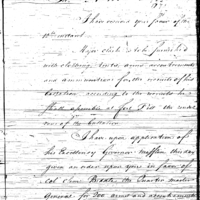 I have received your favor of the
10th instant.
Major Clark is to be furnished
with clothing, tents, arms accoutrements
and ammunition for the recruits of this
battalion according to the number he
shall apprehend at fort Pitt the residue
of the battalion
I have upon application of
his Excellency Governor Mifflin this day
given an order upon you in favor of
col. the Quarter master
General for 200 arms and accoutrements